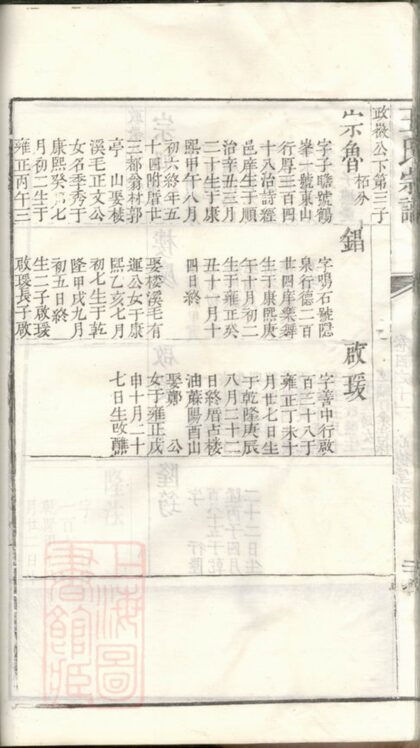 王氏宗譜
政徽公下第三子
宗魯 栢分
字子瞻號鶴
峯一號東山
行厚三百四
十八治詩經
邑庠生于順
治辛丑三月
二十生于康
熙甲午八月
初六終年五
十四附厝世
三都翁材郭
亭山娶樓
溪毛正文公
女名季秀于
康熙癸 七
月初二生于
雍正丙午三
錩
字鳴石號隱
泉行德二百
廿四庠樂舞
生于康熙庚
午十月初二
生于雍正癸
丑十一月十
四日終
娶樓溪毛有
運公女于康
熙乙亥七月
初七生于乾
隆甲戌九月
初五日終
生二子啟瑗
啟瑗長子啟
啟瑗
字善中行啟
百三十八于
雍正丁未十
月廿七日生
于乾隆庚辰
八月二十二
日終厝占樓
油蔴陽酉山
娶鄭 公
女于雍正戊
申十月二十
七日生改醮
上海圖
書館藏